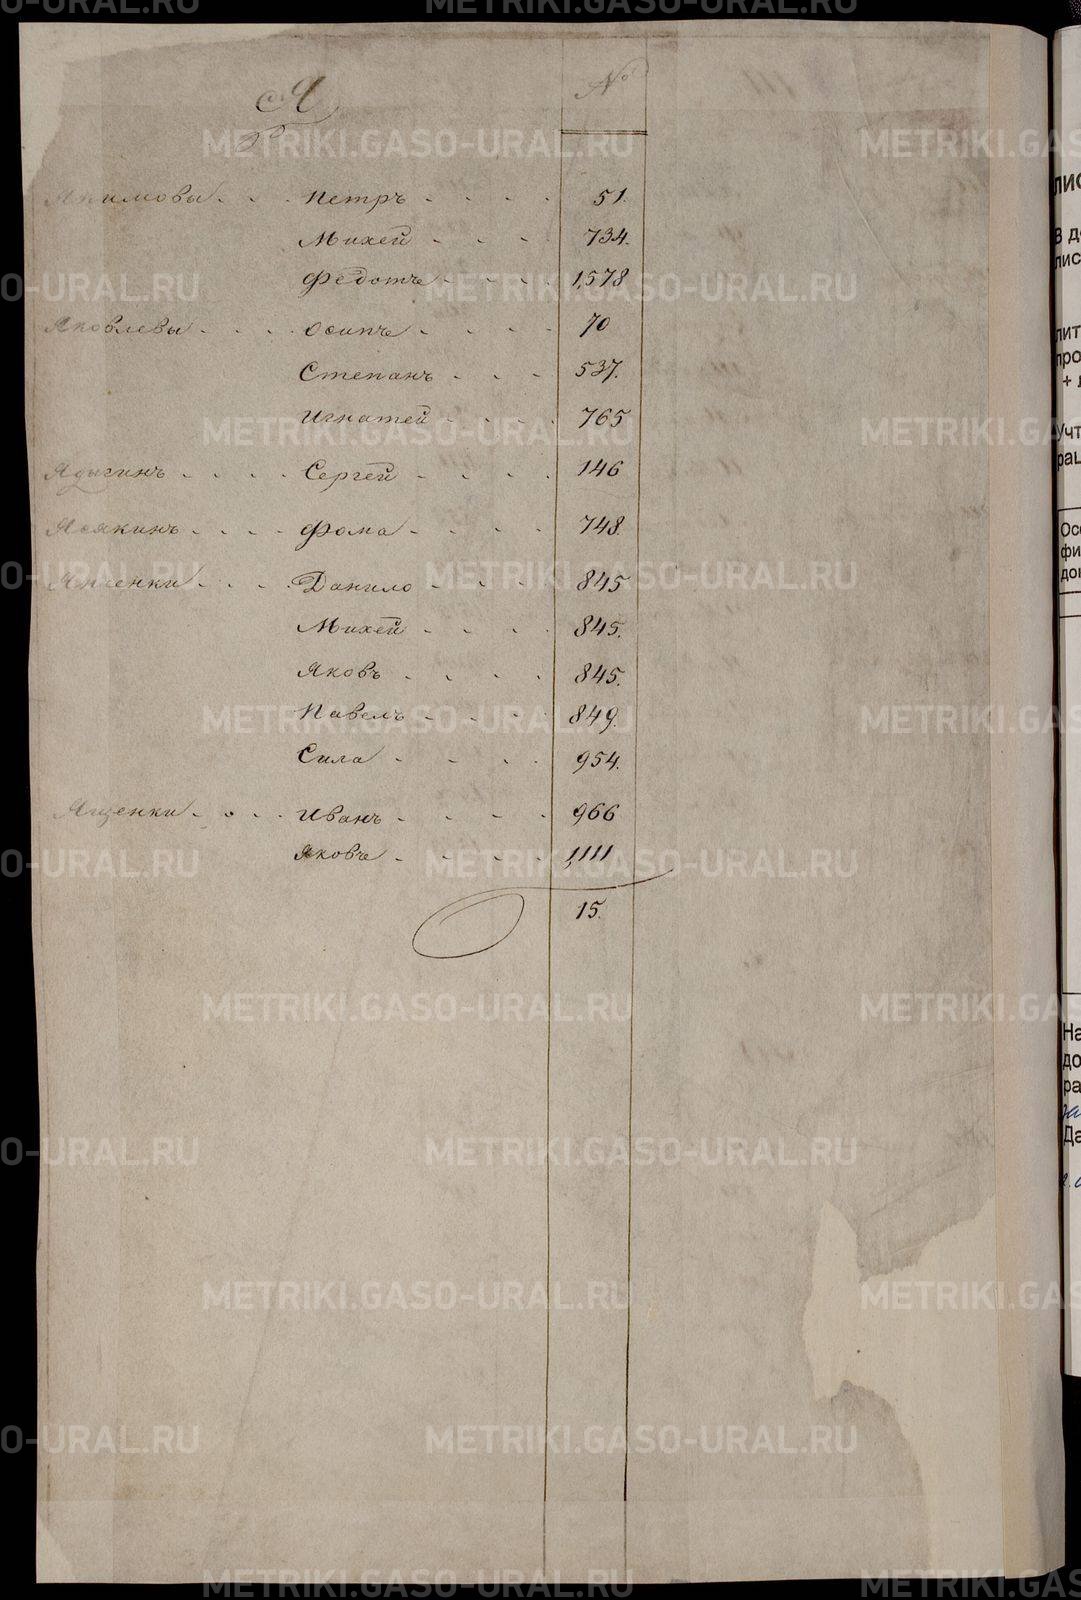 Я №
Якимовы . . . Петръ . . . . 51.
Михей . . . 734.
Федотъ . . . . 1,578
Яковлевы . . . . Осипъ . . . . 70
Степанъ . . . 537.
Игнатей . . . . 765
Ядыгинъ . . . . Сергей . . . . 146
Ясякинъ . . . . Фома . . . . 748.
Данило . . . . 845
Михей . . . . 845.
Яковъ . . . . 845.
Павелъ . . . . 849.
Сила . . . . 954.
Ященки . . . . Иванъ . . . . 966
Яковъ . . . . 1,111
15.
METRIKI.GASO-URAL.RU